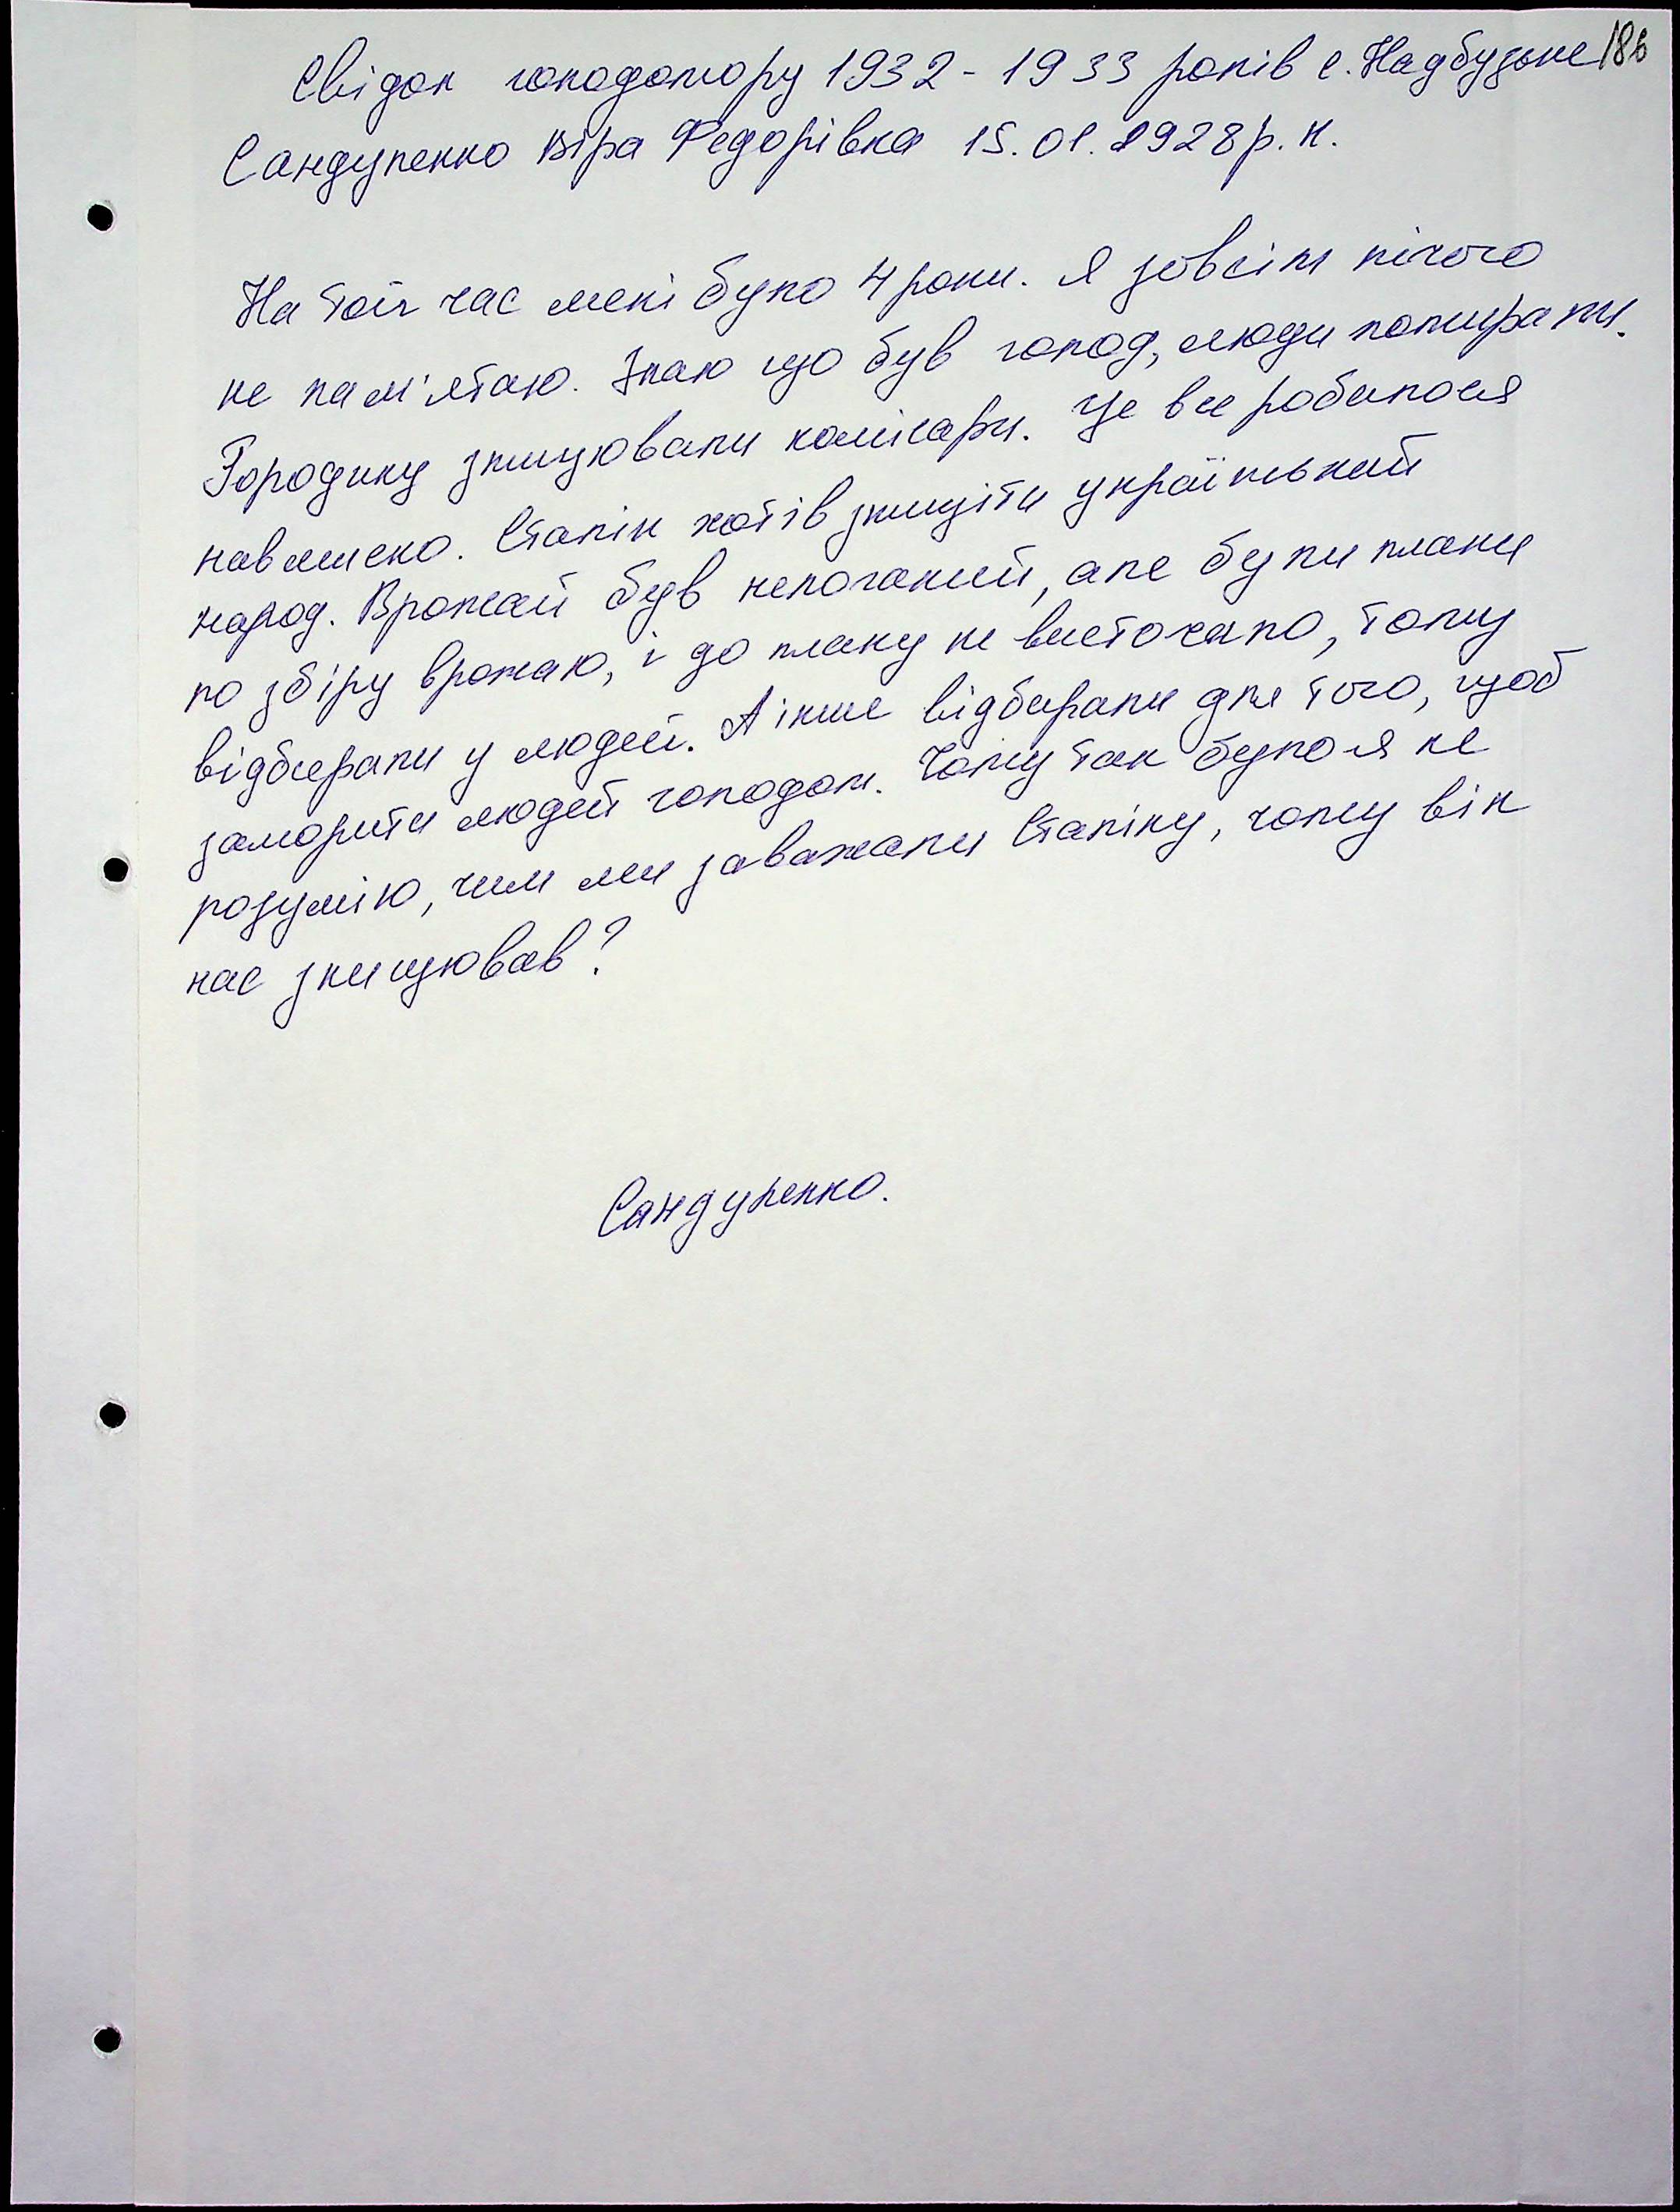 186
Свідок голодомору 1932 - 1933 років с. Надбузьке
Сандуленко Віра Федорівна 15.01.1928 р. н.
На той час мені було 4 роки. Я зовсім нічого
не пам'ятаю. Знаю що був голод, люди помирали.
Городину знищювали комісари. Це все робилося
навмисно. Сталін хотів знищіти український
народ. Врожай був непоганий, але були плани
по збіру врожаю, і до плану не вистачало, тому
відбирали у людей. А інше відбирали для того, щоб
заморити людей голодом. Чому так було я не
розумію, чим ми заважали Сталіну, чому він
нас знищював?
Сандуленко.